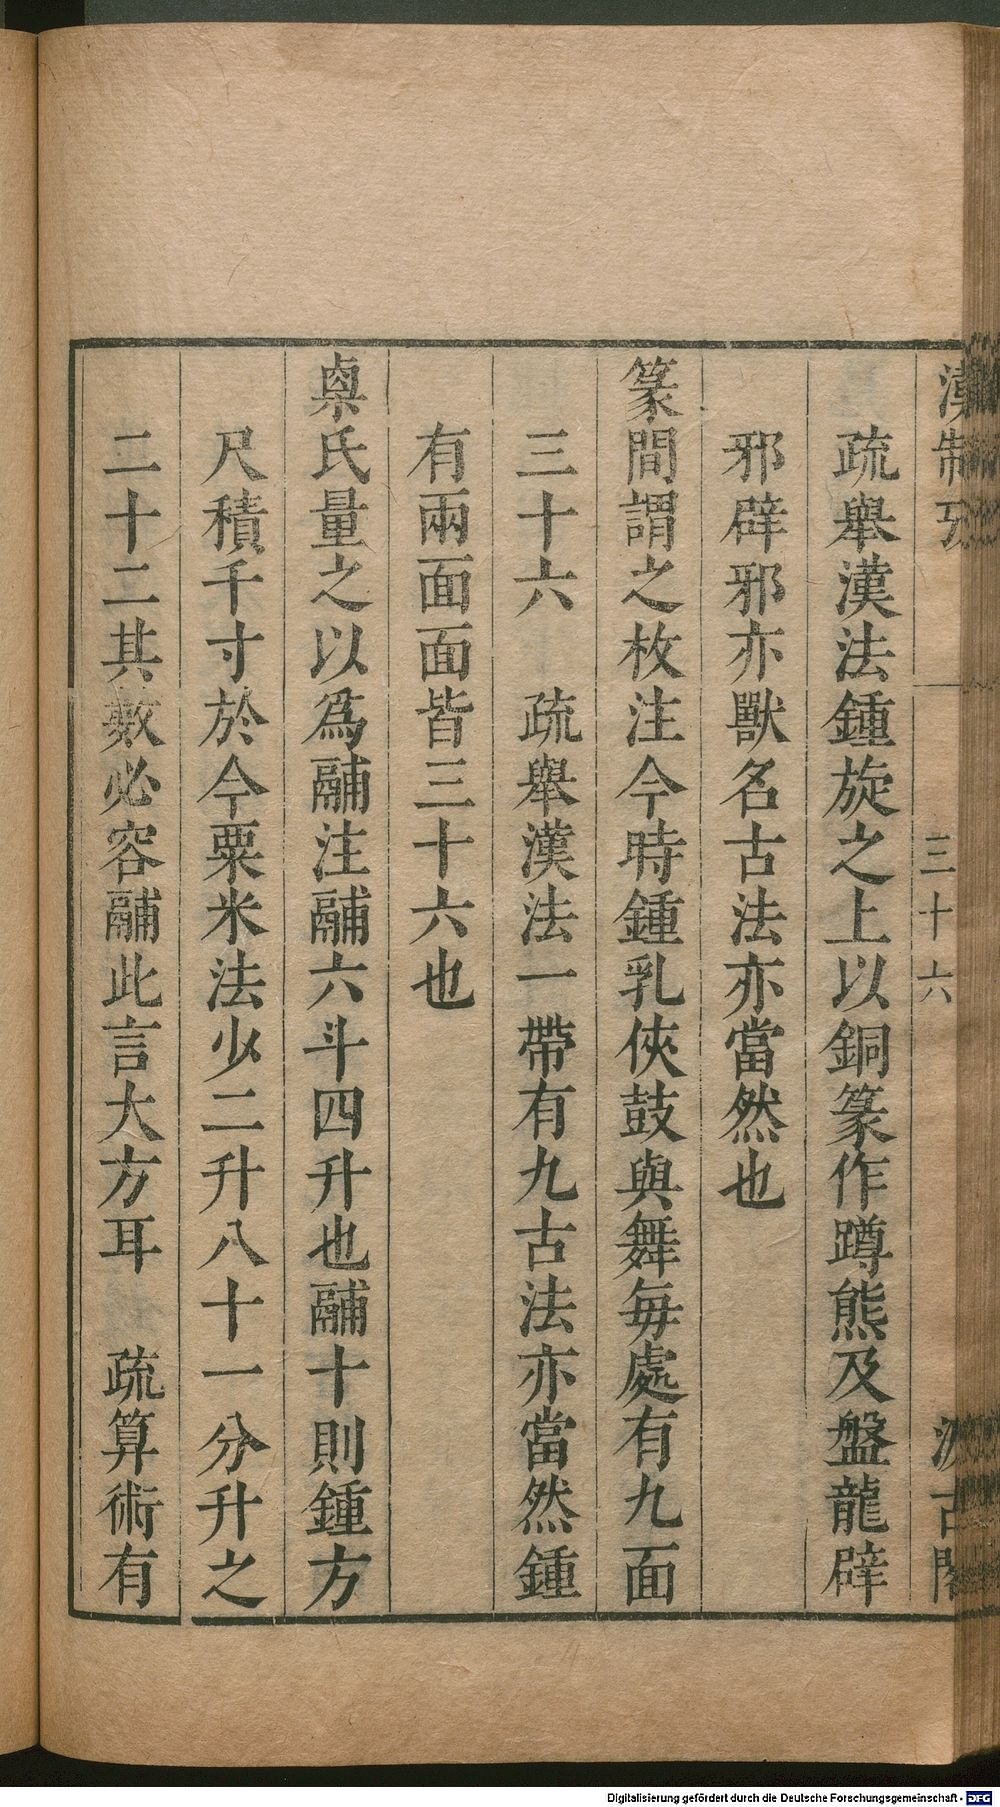 漢制攷 三十六 汲古閣
疏舉漢法鍾旋之上以銅篆作蹲熊及盤龍辟
邪辟邪亦獸名古法亦當然也
篆間謂之枚注今時鍾乳俠鼓與舞每處有九面
三十六 疏舉漢法一帶有九古法亦當然鍾
有兩面面皆三十六也
㮚氏量之以爲鬴注鬴六斗四升也鬴十則鍾方
尺積千寸於今粟米法少二升八十一分升之
二十二其數必容鬴此言大方耳 疏算術有
Digitalisierung gefördert durch die Deutsche Forschungsgemeinschaft - DFG